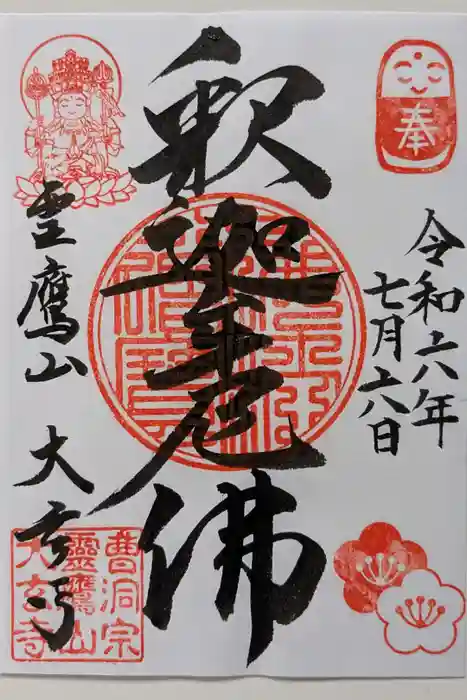 奉
令和六年
七月六日
釈迦牟尼佛
霊鷹山
大玄寺
曹洞宗
靈鷹山
大玄寺